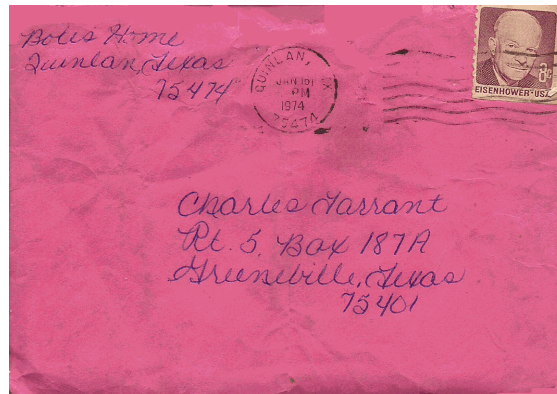 Boles Home
Quinlan, Texas
75474
QUINLAN, TX
JAN 16
PM
1974
75474
8¢
EISENHOWER·USA
Charles Tarrant
Rt. 5. Box 187A
Greeneville, Texas
75401